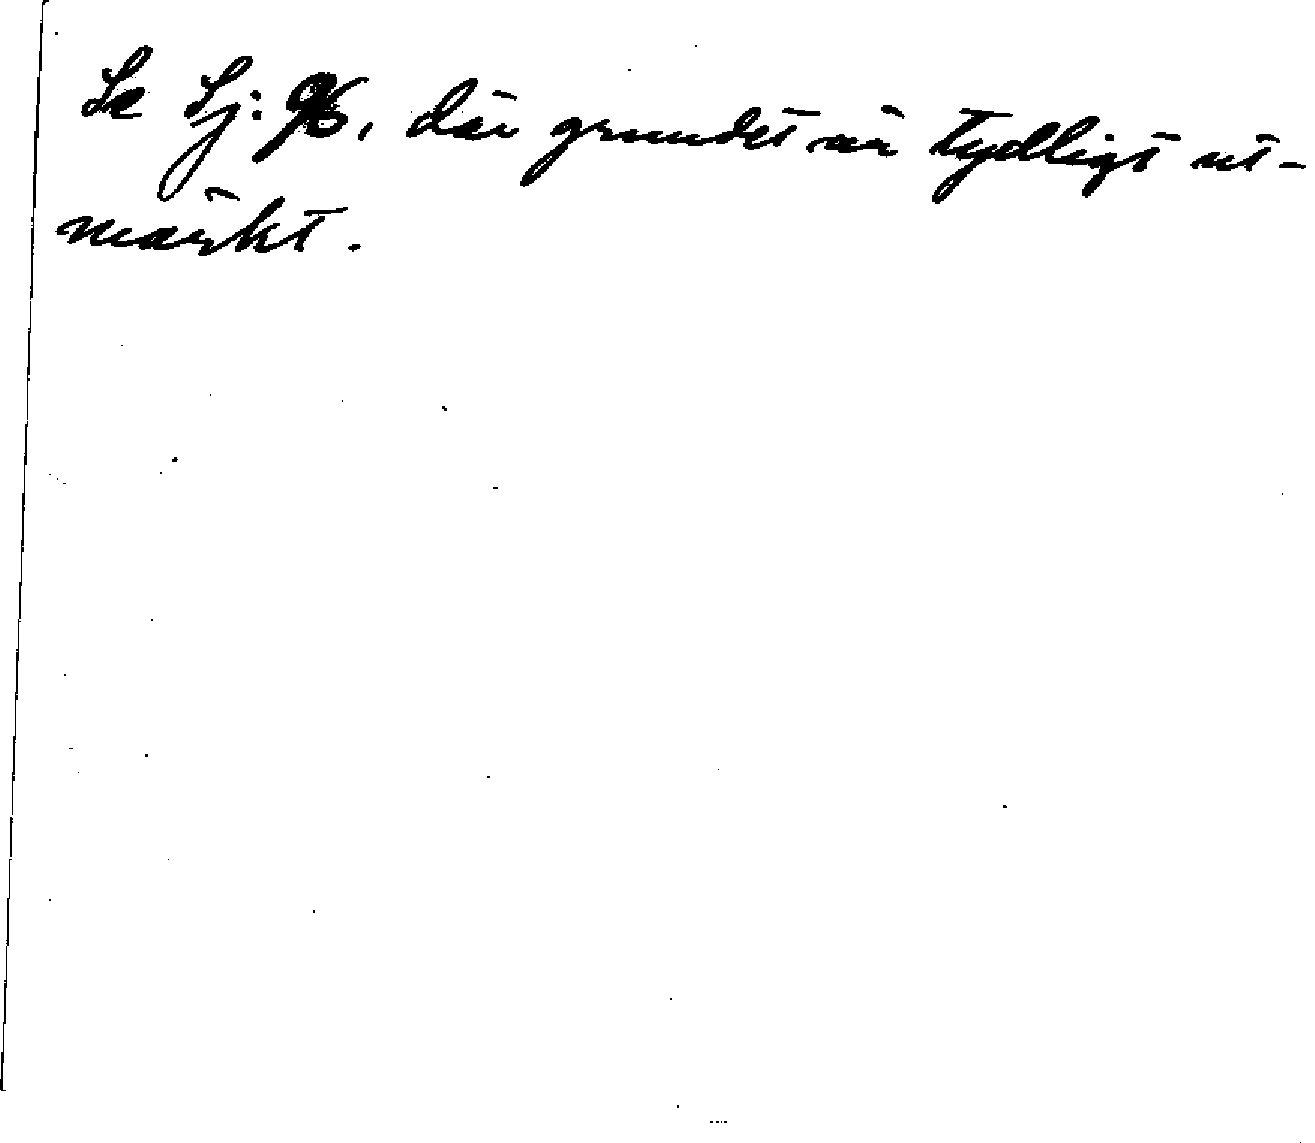 Se Sj: 96, där grundet är tydligt ut-
märkt.